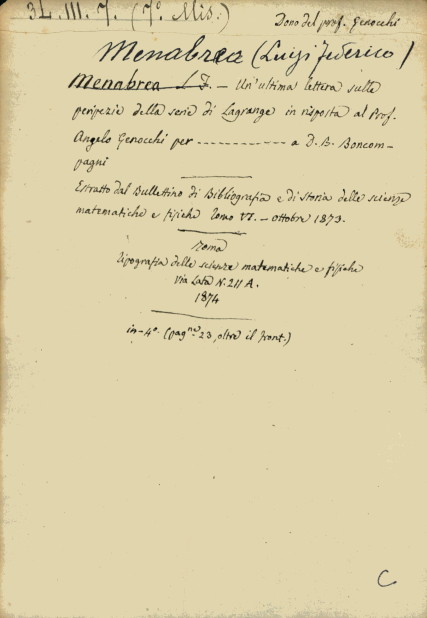 34. III. 7. (7° Mis.)
Dono del prof. Genocchi
Menabrea (Luigi Federico)
Menabrea L. F. — Un'ultima lettera sulle
peripezie della serie di Lagrange in risposta al Prof.
Angelo Genocchi per ------------- a D. B. Boncom-
pagni
Estratto dal Bullettino di Bibliografia e di storia delle scienze
matematiche e fisiche Tomo VI. — ottobre 1873.
Roma
Tipografia delle scienze matematiche e fisiche
Via Lata N. 211 A.
1874
in-4°. (pag.ne 23, oltre il front.)
C